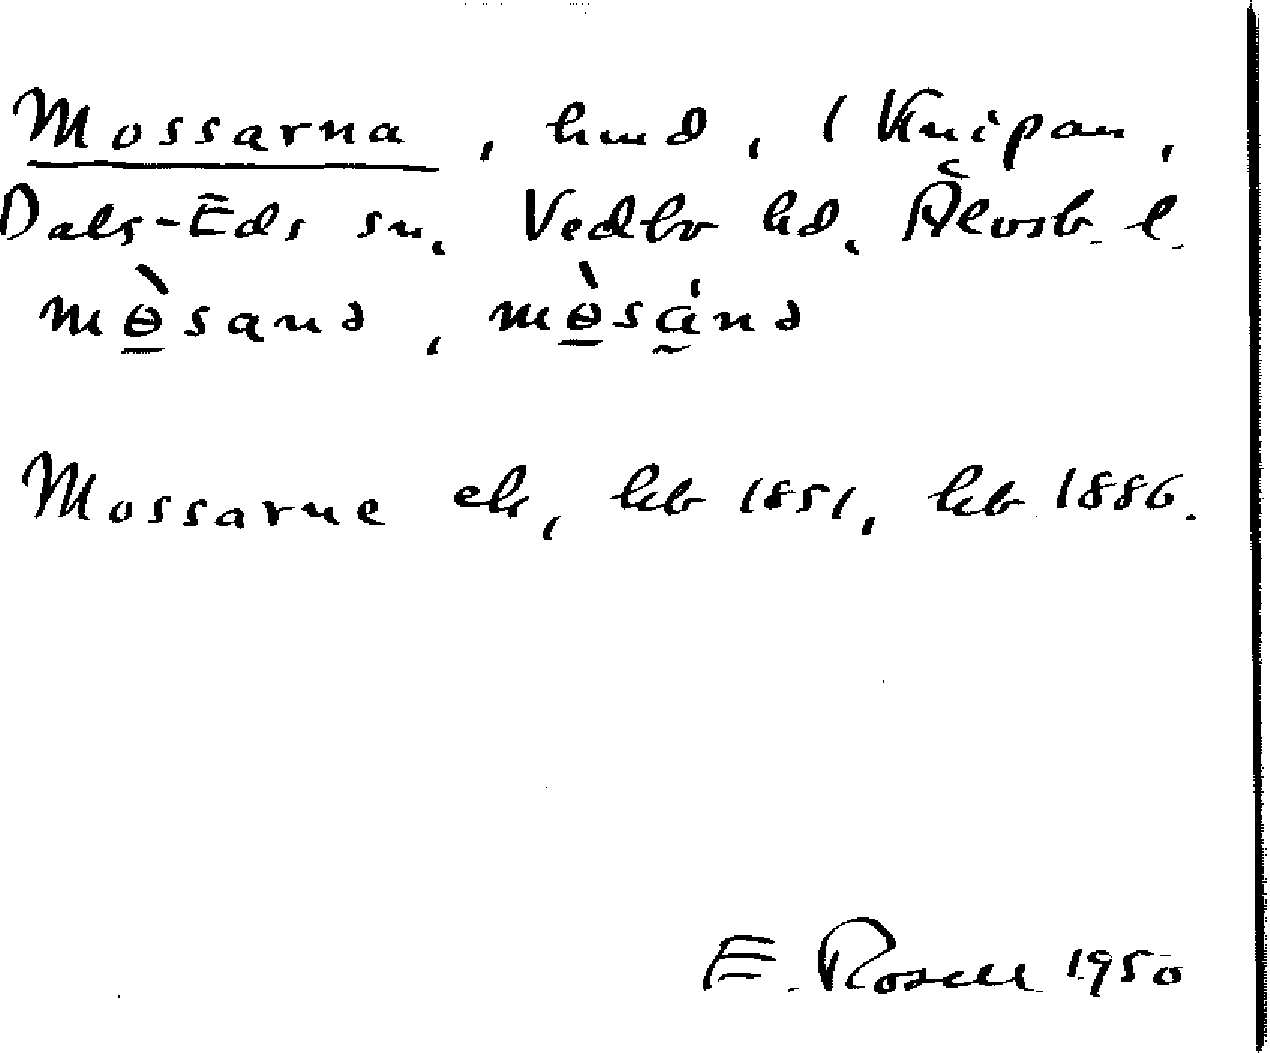 Mossarna, hmd, 1 Knipan,
Dals-Eds sn, Vedbo hd, Älvsb. l.
mө̀sanə, mө̀sánə
Mossarne ek, hkb 1886.
E. Rosell 1950